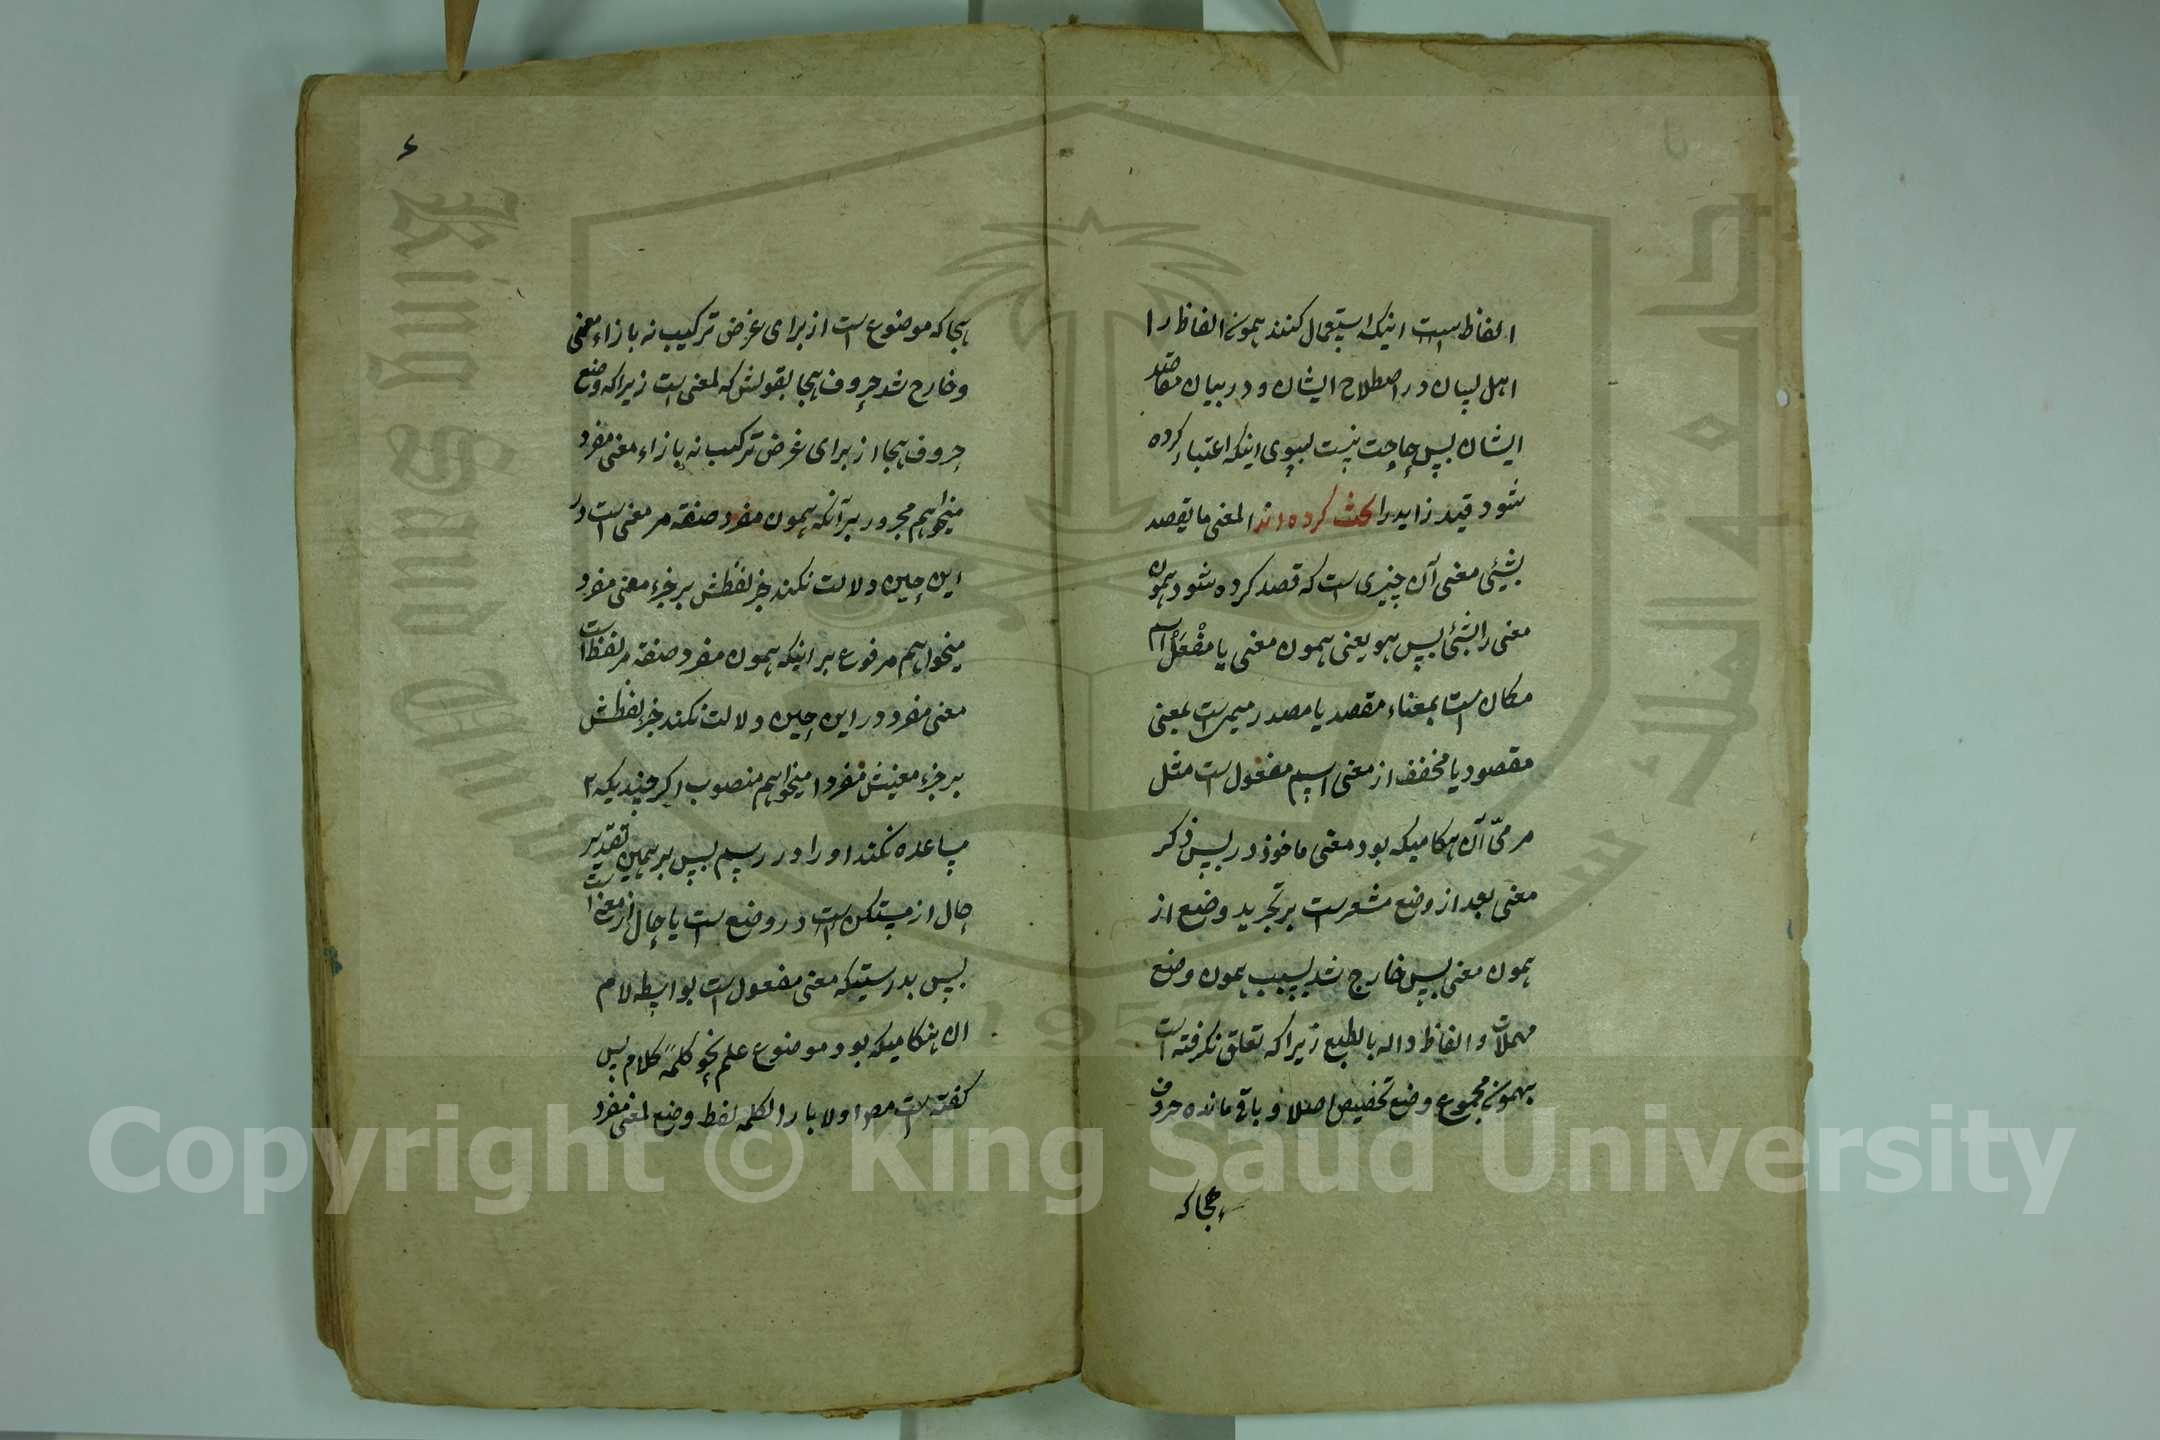 الفاظ است اینکه استعمال کنند همون الفاظ را
اهل لسان در اصطلاح ایشان و در بیان مقاصد
ایشان پس حاجت نیست بسوی اینکه اعتبار کرده
شود قید زاید را بحث کرده اند المعنی ما یقصد
بشیئی معنی آن چیزی است که قصد کرده شود همون
معنی را بشئ پس هو یعنی همون معنی یا مفْعَلْ اسم
مکان است بمعناء مقصد یا مصدر میمی است بمعنی
مقصود یا مخفف از معنی اسم مفعول است مثل
مرمیّ آن هنکامیکه بود معنی ماخوذ در پس ذکر
معنی بعد از وضع مشعر است بر تجرید وضع از
همون معنی پس خارج شد بسبب همون وضع
مهملات و الفاظ داله بالطبع زیرا که تعلق نکرفته است
بهمون مجموع وضع تخصیص اصلا و باقی مانده حروف
هجا که
۶
هجا که موضوع است از برای غرض ترکیب نه بازاء معنی
و خارج شد حروف هجا بقولش که لمعنی است زیرا که وضع
حروف هجا از برای غرض ترکیب نه بازاء معنی مفرد
میخواهم مجرور برآنکه همون مفرد صفته مر معنی است در
این حین دلالت نکند جزء لفظش بر جزء معنی مفرد
میخواهم مرفوع بر اینکه همون مفرد صفته مر لفظ است
معنی مفرد در این حین دلالت نکند جزء لفظش
بر جزء معنیش مفردا میخواهم منصوب اکر چندیکه
مساعده نکند او را در رسم پس بر همین تقدیر
حال از مستکن است در وضع است یا حال از معنی است
پس بدرستیکه معنی مفعول است بواسطه لام
ان هنکامیکه بود موضوع علم نحو کلمه کلام پس
کفته است مص اولا بار الکلمه لفظ وضع لمعنی مفرد
Copyright © King Saud University
King Saud University
1957